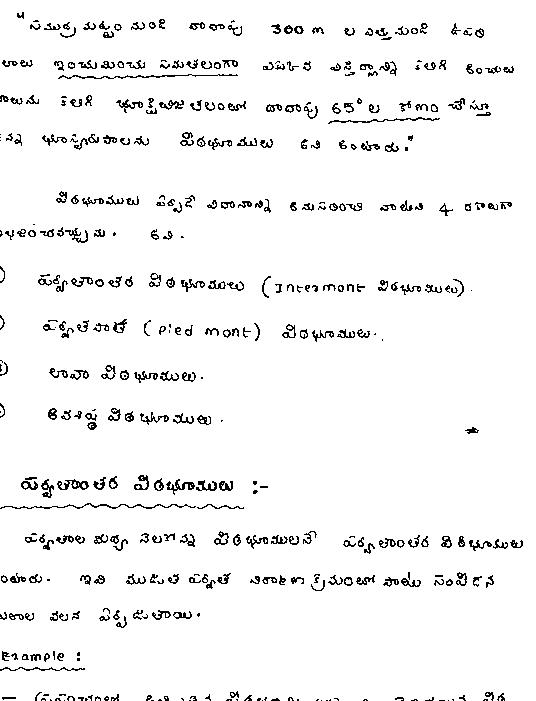 "సముద్ర మట్టం నుండి దాదాపు 300 m ల ఎత్తు నుండి ఉపరి
తలాలు ఇంచుమించు సమతలంగా విస్తీర్ణాన్ని కలిగి అంచులు
వాలును కలిగి భూక్షితిజ తలంలో దాదాపు 65° ల కోణం చేస్తూ
ఉన్న భూస్వరూపాలను పీఠభూములు అని అంటారు."
పీఠభూములు ఏర్పడే విధానాన్ని అనుసరించి వాటిని 4 రకాలుగా
విభజించవచ్చును. అవి.
పర్వతాంతర పీఠభూములు (Intermont పీఠభూములు).
పర్వతపాద (Pied mont) పీఠభూములు.
లావా పీఠభూములు.
అవశిష్ట పీఠభూములు.
పర్వతాంతర పీఠభూములు :-
పర్వతాల మధ్య నెలకొన్న పీఠభూములనే పర్వతాంతర పీఠభూములు
అంటారు. ఇవి ముడుత పర్వత క్రమంలో పాటు సంభవించిన
వలన ఏర్పడుతాయి.
Example :